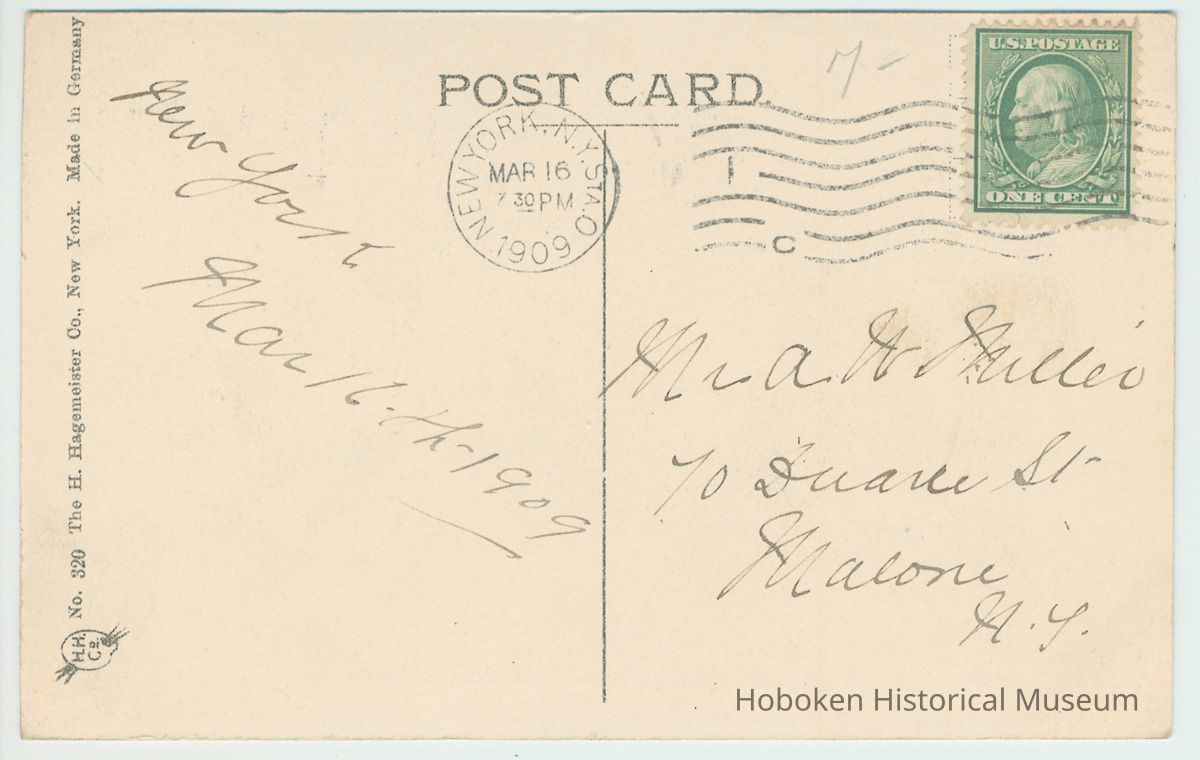 POST CARD.
7-
U.S. POSTAGE
ONE CENT 1
NEW YORK, N.Y. STA. O
MAR 16
7 30 PM
1909
1
C
New York
Mar 16-th-1909
Mr. A. W. Miller
70 Duane St
Malone
N.Y.
No. 320 The H. Hagemeister Co., New York. Made in Germany
H.H.
Co.
Hoboken Historical Museum